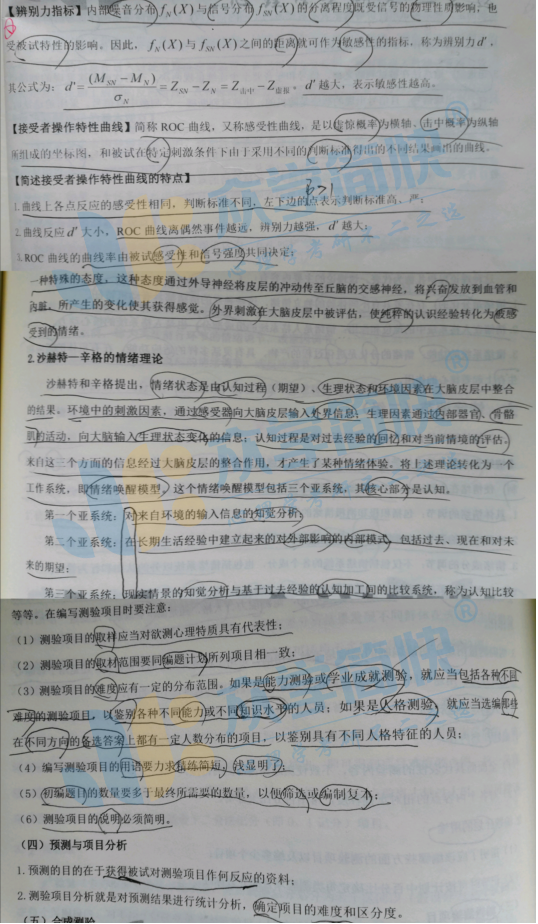 【辨别力指标】内部噪音分布 f_N(X) 与信号分布 f_SN(X) 的分离程度既受信号的物理性质影响，也
受被试特性的影响。因此，f_N(X) 与 f_SN(X) 之间的距离就可作为敏感性的指标，称为辨别力 d′，
其公式为：d′=(M_SN−M_N)/σ_N=Z_SN−Z_N=Z击中−Z虚报。d′越大，表示敏感性越高。
【接受者操作特性曲线】简称 ROC 曲线，又称感受性曲线，是以虚惊概率为横轴、击中概率为纵轴
所组成的坐标图，和被试在特定刺激条件下由于采用不同的判断标准得出的不同结果画出的曲线。
【简述接受者操作特性曲线的特点】
β>1
1.曲线上各点反应的感受性相同，判断标准不同，左下边的点表示判断标准高、严；
2.曲线反应 d′大小，ROC 曲线离偶然事件越远，辨别力越强，d′越大；
3.ROC 曲线的曲线率由被试感受性和信号强度共同决定；
一种特殊的态度，这种态度通过外导神经将皮层的冲动传至丘脑的交感神经，将兴奋发放到血管和
内脏，所产生的变化使其获得感觉。外界刺激在大脑皮层中被评估，使纯粹的认识经验转化为被感
受到的情绪。
2.沙赫特—辛格的情绪理论
沙赫特和辛格提出，情绪状态是由认知过程（期望）、生理状态和环境因素在大脑皮层中整合
的结果。环境中的刺激因素，通过感受器向大脑皮层输入外界信息；生理因素通过内部器官、骨骼
肌的活动，向大脑输入生理状态变化的信息；认知过程是对过去经验的回忆和对当前情境的评估。
来自这三个方面的信息经过大脑皮层的整合作用，才产生了某种情绪体验。将上述理论转化为一个
工作系统，即情绪唤醒模型，这个情绪唤醒模型包括三个亚系统，其核心部分是认知。
第一个亚系统：对来自环境的输入信息的知觉分析；
第二个亚系统：在长期生活经验中建立起来的对外部影响的内部模式，包括过去、现在和对未
来的期望；
第三个亚系统：现实情景的知觉分析与基于过去经验的认知加工间的比较系统，称为认知比较
等等。在编写测验项目时要注意：
（1）测验项目的取样应当对欲测心理特质具有代表性；
（2）测验项目的取材范围要同编题计划所列项目相一致；
（3）测验项目的难度应有一定的分布范围。如果是能力测验或学业成就测验，就应当包括各种不同
难度的测验项目，以鉴别各种不同能力或不同知识水平的人员；如果是人格测验，就应当选编那些
在不同方向的备选答案上都有一定人数分布的项目，以鉴别具有不同人格特征的人员；
（4）编写测验项目的用语要力求精练简短，浅显明了；
（5）初编题目的数量要多于最终所需要的数量，以便筛选或编制复本；
（6）测验项目的说明必须简明。
（四）预测与项目分析
1.预测的目的在于获得被试对测验项目作何反应的资料；
2.测验项目分析就是对预测结果进行统计分析，确定项目的难度和区分度。
（五）合成测验